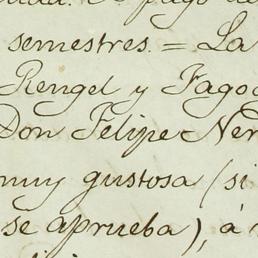 pago
semestres. = La
Rengel y Fago
Don Felipe Ner
muy gustosa (si
se aprueba), á